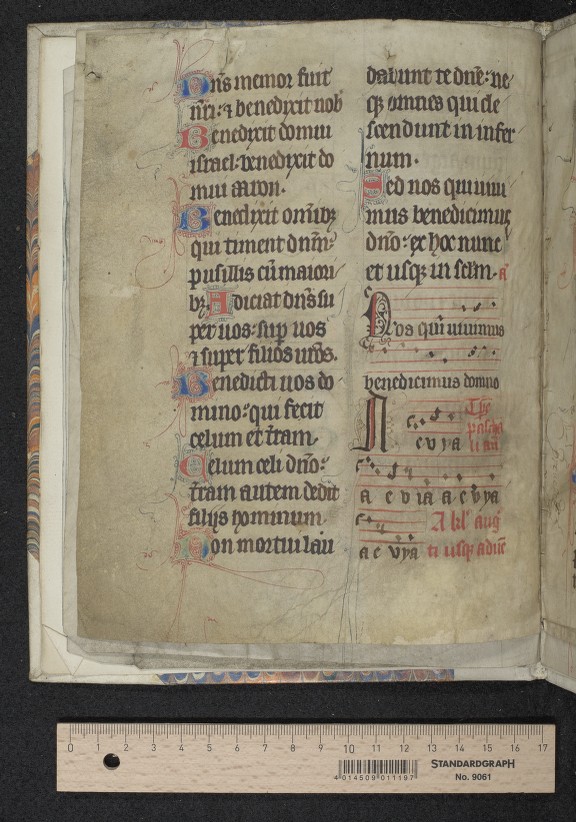 Dns memor fuit
nri: ⁊ benedixit nob
Benedixit domui
israel: benedixit do
mui aaron.
Benedixit omibꝫ
qui timent dnm:
pusillis cū maiori
bꝫ. Adiciat dns su
per uos: sup uos
⁊ super filios uros.
Benedicti uos do
mino: qui fecit
celum et tram.
Celum celi dno:
tram autem dedit
filijs hominum.
Non mortui lau
dabunt te dne: ne
qꝫ omnes qui de
scendunt in infer
num.
Sed nos qui uiui
mus benedicimus
dno: ex hoc nunc
et usqꝫ in sclm. a
Nos qui uiuimus
benedicimus domno
e v y a
a e v ia a e v ya
A kl' aug
a e vya ti usqꝫ aduē
0 1 2 3 4 5 6 7 8 9 10 11 12 13 14 15 16 17
STANDARDGRAPH
No. 9061
4 014509 011197